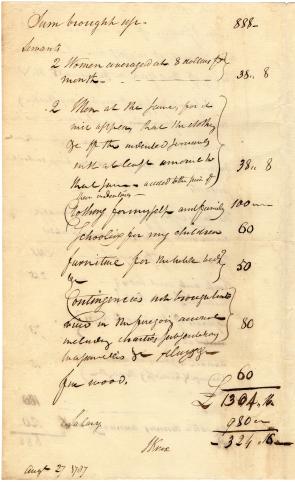 Sum brought up - 888 -
Servants
2 Women averaged at 8 dollars pr
month - 38 " 8
2 Men at the same, for it
will appear, that the clothing
&c of the indented servants
will at least amount to
that sum - added to the price of
their indentures - 38 " 8
Clothing for myself and family 100 " -
Schooling for my children 60
furniture for the table beds
&c 50
Contingencies not brought into
view in the foregoing account
including charities, subscriptions
&c 80
fire wood. 60
£ 1304.16
Salary 980 "
- 324.16 -
HKnox
Augt 27 1787